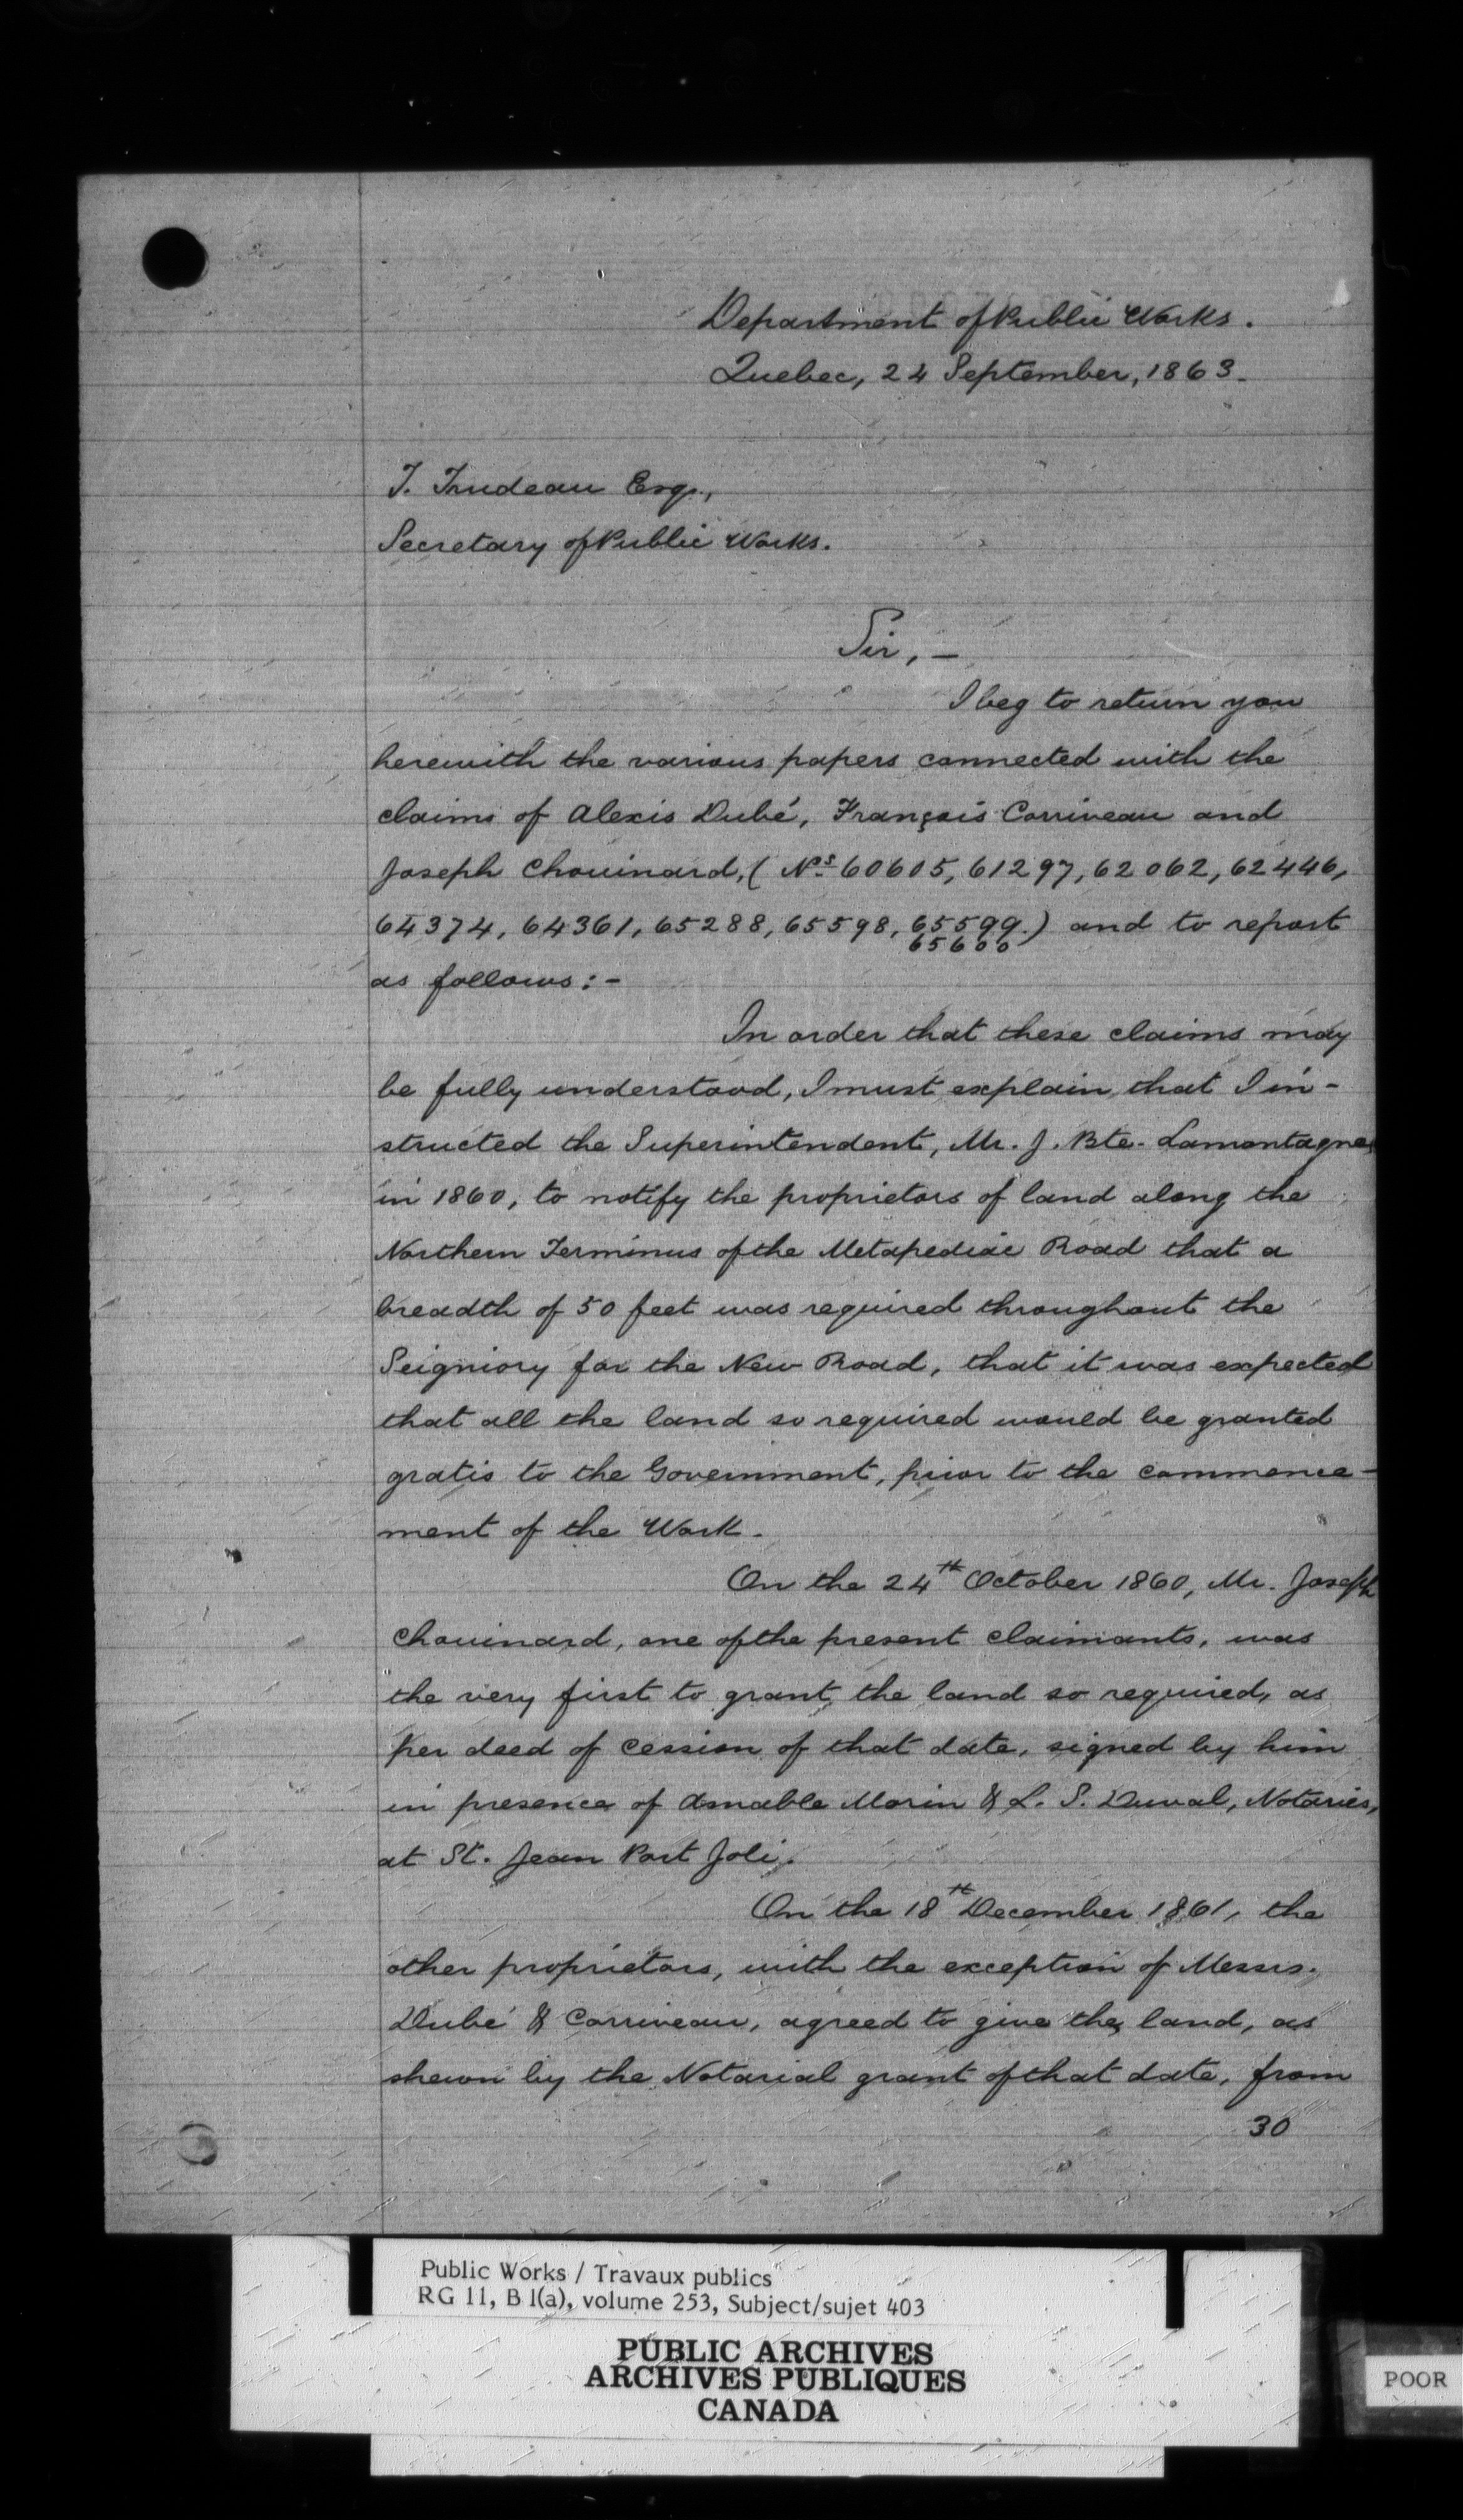 Department of Public Works.
Quebec, 24 September, 1863.
T. Trudeau Esq.,
Secretary of Public Works.
Sir, —
I beg to return you
herewith the various papers connected with the
claims of Alexis Dubé, François Corriveau and
Joseph Chouinard, ( Nos 60605, 61297, 62062, 62446,
64374, 64361, 65288, 65598, 65599.) and to report
65600
as follows: -
In order that these claims may
be fully understood, I must explain that I in-
structed the Superintendent, Mr. J. Bte. Lamontagne,
in 1860, to notify the proprietors of land along the
Northern Terminus of the Metapediac Road that a
breadth of 50 feet was required throughout the
Seigniory for the New Road, that it was expected
that all the land so required would be granted
gratis to the Government, prior to the commence-
ment of the Work.
On the 24th October 1860, Mr. Joseph
Chouinard, one of the present claimants, was
the very first to grant the land so required, as
per deed of cession of that date, signed by him
in presence of Amable Morin & L. S. Duval, Notaries,
at St. Jean Port Joli.
On the 18th December 1861, the
other proprietors, with the exception of Messrs.
Dubé & Corriveau, agreed to give the land, as
shewn by the Notarial grant of that date, from
30
Public Works / Travaux publics
RG 11, B 1(a), volume 253, Subject/sujet 403
PUBLIC ARCHIVES
ARCHIVES PUBLIQUES
CANADA
POOR